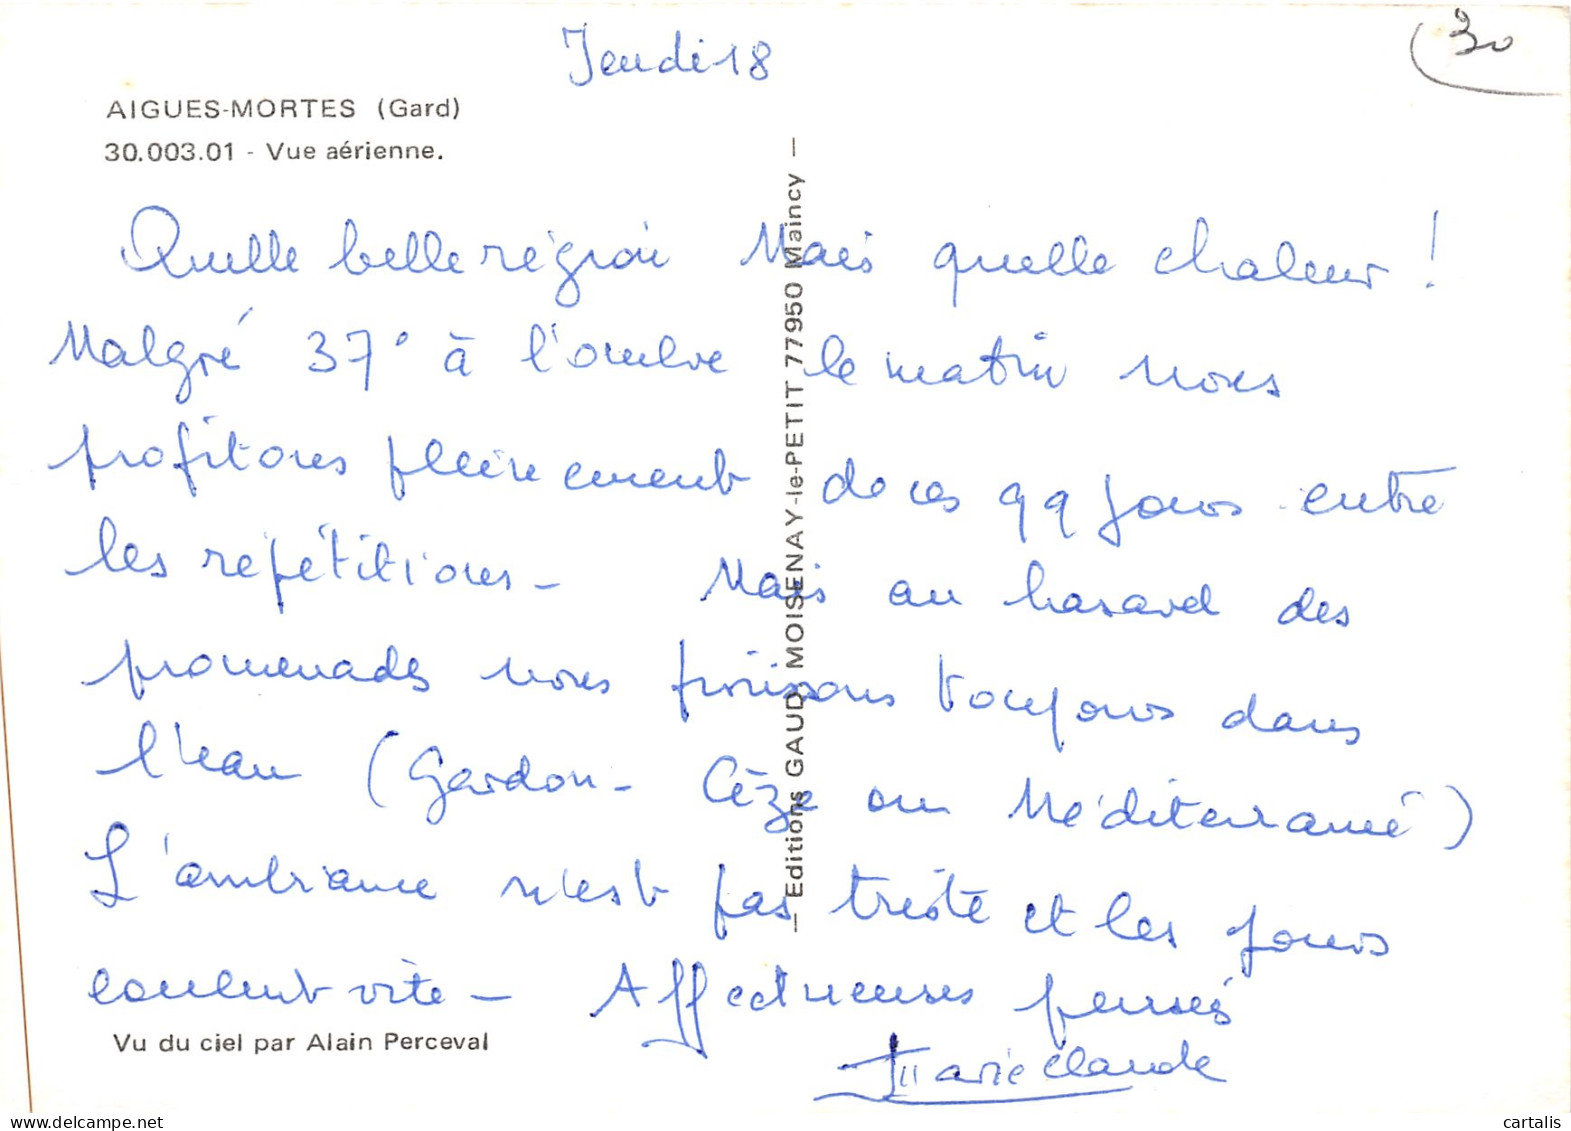 Jeudi 18
30
AIGUES-MORTES (Gard)
30.003.01 - Vue aérienne.
Quelle belle région Mais quelle chaleur !
Malgré 37° à l'ombre le matin nous
profitons pleinement de ces qq jours entre
les répétitions - Mais au hasard des
promenades nous finissons toujours dans
l'eau (Gardon - Cèze ou Méditerranée)
L'ambiance n'est pas triste et les jours
coulent vite - Affectueuses pensées
Marie Claude
Vu du ciel par Alain Perceval
— Editions GAUD, MOISENAY-le-PETIT 77950 Maincy —
cartalis